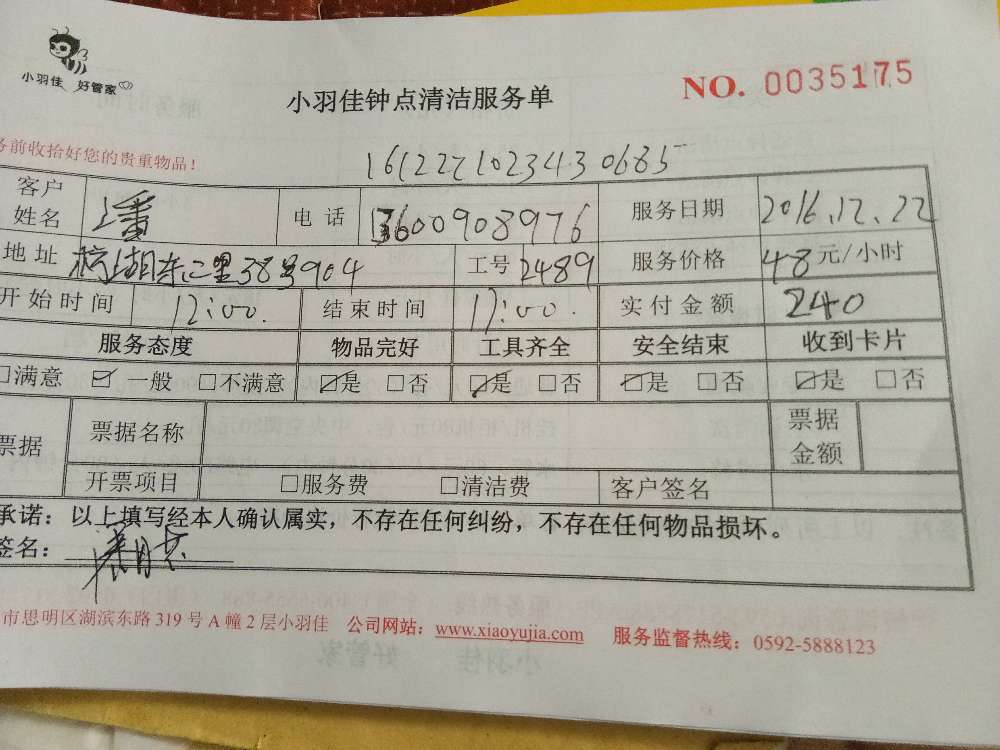 小羽佳 好管家
NO. 0035175
小羽佳钟点清洁服务单
务前收拾好您的贵重物品!
1612221023430685
客户姓名 潘 电话 13600908976 服务日期 2016.12.22
地址 槟湖东二里38号904 工号 2489 服务价格 48元/小时
开始时间 12:00. 结束时间 17:00. 实付金额 240
服务态度 物品完好 工具齐全 安全结束 收到卡片
□满意 ☑一般 □不满意 ☑是 □否 ☑是 □否 ☑是 □否 ☑是 □否
票据 票据名称 票据金额
开票项目 □服务费 □清洁费 客户签名
承诺：以上填写经本人确认属实，不存在任何纠纷，不存在任何物品损坏。
签名：
市思明区湖滨东路319号A幢2层小羽佳 公司网站：www.xiaoyujia.com 服务监督热线：0592-5888123
小羽佳 好管家